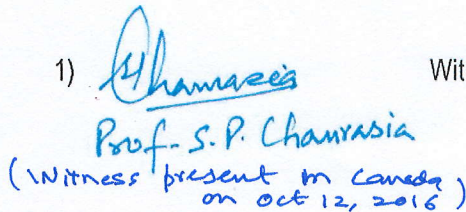 1) Chaurasia Wit
Prof. S. P. Chaurasia
(Witness present in Canada,
on Oct 12, 2016)